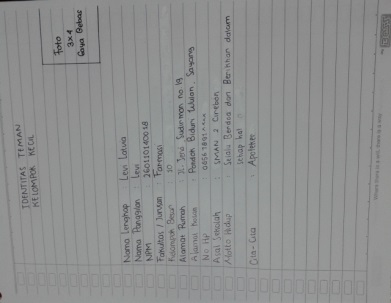 IDENTITAS TEMAN
KELOMPOK KECIL
Foto
3x4
Gaya Bebas
Nama Lengkap : Levi Latwa
Nama Panggilan : Levi
NPM : 260110140018
Fakultas / Jurusan : Farmasi
Kelompok Besar : 10
Alamat Rumah : Jl. Jend Sudirman no. 19
Alamat Kosan : Pondok Bidan Wulan, Sayang
No HP
Asal Sekolah : SMAN 2 Cirebon
Motto Hidup : Selalu Berdoa dan Berikhtiar dalam
setiap hal
Cita-Cita : Apoteker